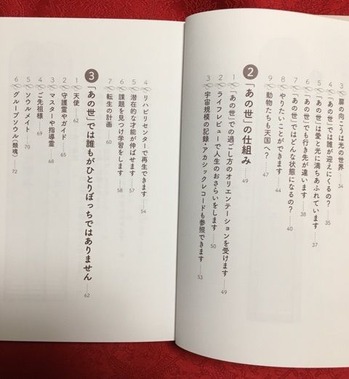 3 扉の向こうは光の世界 34
4 「あの世」では誰が迎えにくるの？ 35
5 「あの世」は愛と光に満ちあふれています 37
6 「あの世」でも行き先が違います 38
7 「あの世」ではどんな状態になるの？ 40
8 やりたいことができます 44
9 動物たちも天国へ？ 47
2 「あの世」の仕組み 49
1 「あの世」での過ごし方のオリエンテーションを受けます 49
2 ライフレビューで人生のおさらいをします 50
3 宇宙規模の記録・アカシックレコードも参照できます 53
4 リハビリセンターで再生できます 54
5 潜在的な才能が伸ばせます 57
6 課題を見つけ学習をします 58
7 転生の計画 60
3 「あの世」では誰もがひとりぼっちではありません 62
1 天使 62
2 守護霊やガイド 65
3 マスターや指導霊 68
4 ご先祖様 69
5 ソウルメイト 70
6 グループソウル（類魂） 72